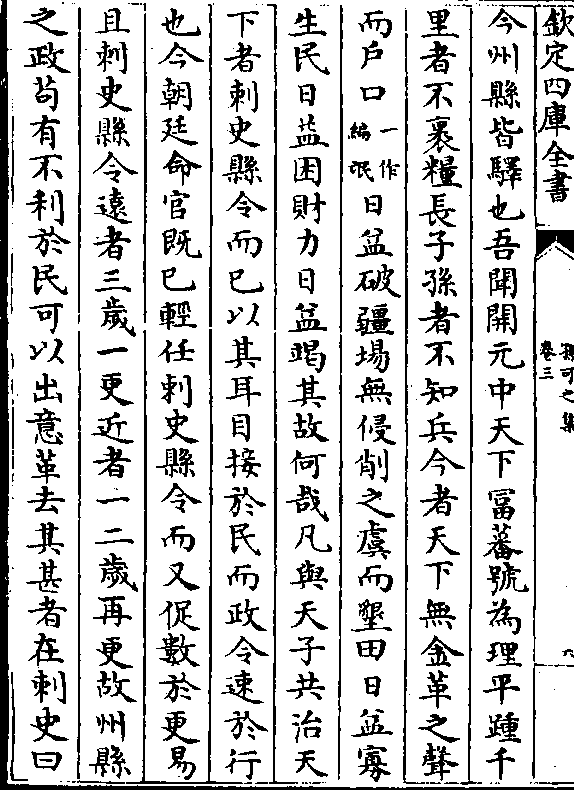 欽定四庫全書
孫可之集
卷三
六
今州縣皆驛也吾聞開元中天下富蕃號為理平踵千
里者不裹糧長子孫者不知兵今者天下無金革之聲
而戶口一作編氓日益破疆場無侵削之虞而墾田日益寡
生民日益困財力日益竭其故何哉凡與天子共治天
下者刺史縣令而已以其耳目接於民而政令速於行
也今朝廷命官既已輕任刺史縣令而又促數於更易
且刺史縣令遠者三歲一更近者一二歲再更故州縣
之政苟有不利於民可以出意革去其甚者在刺史曰